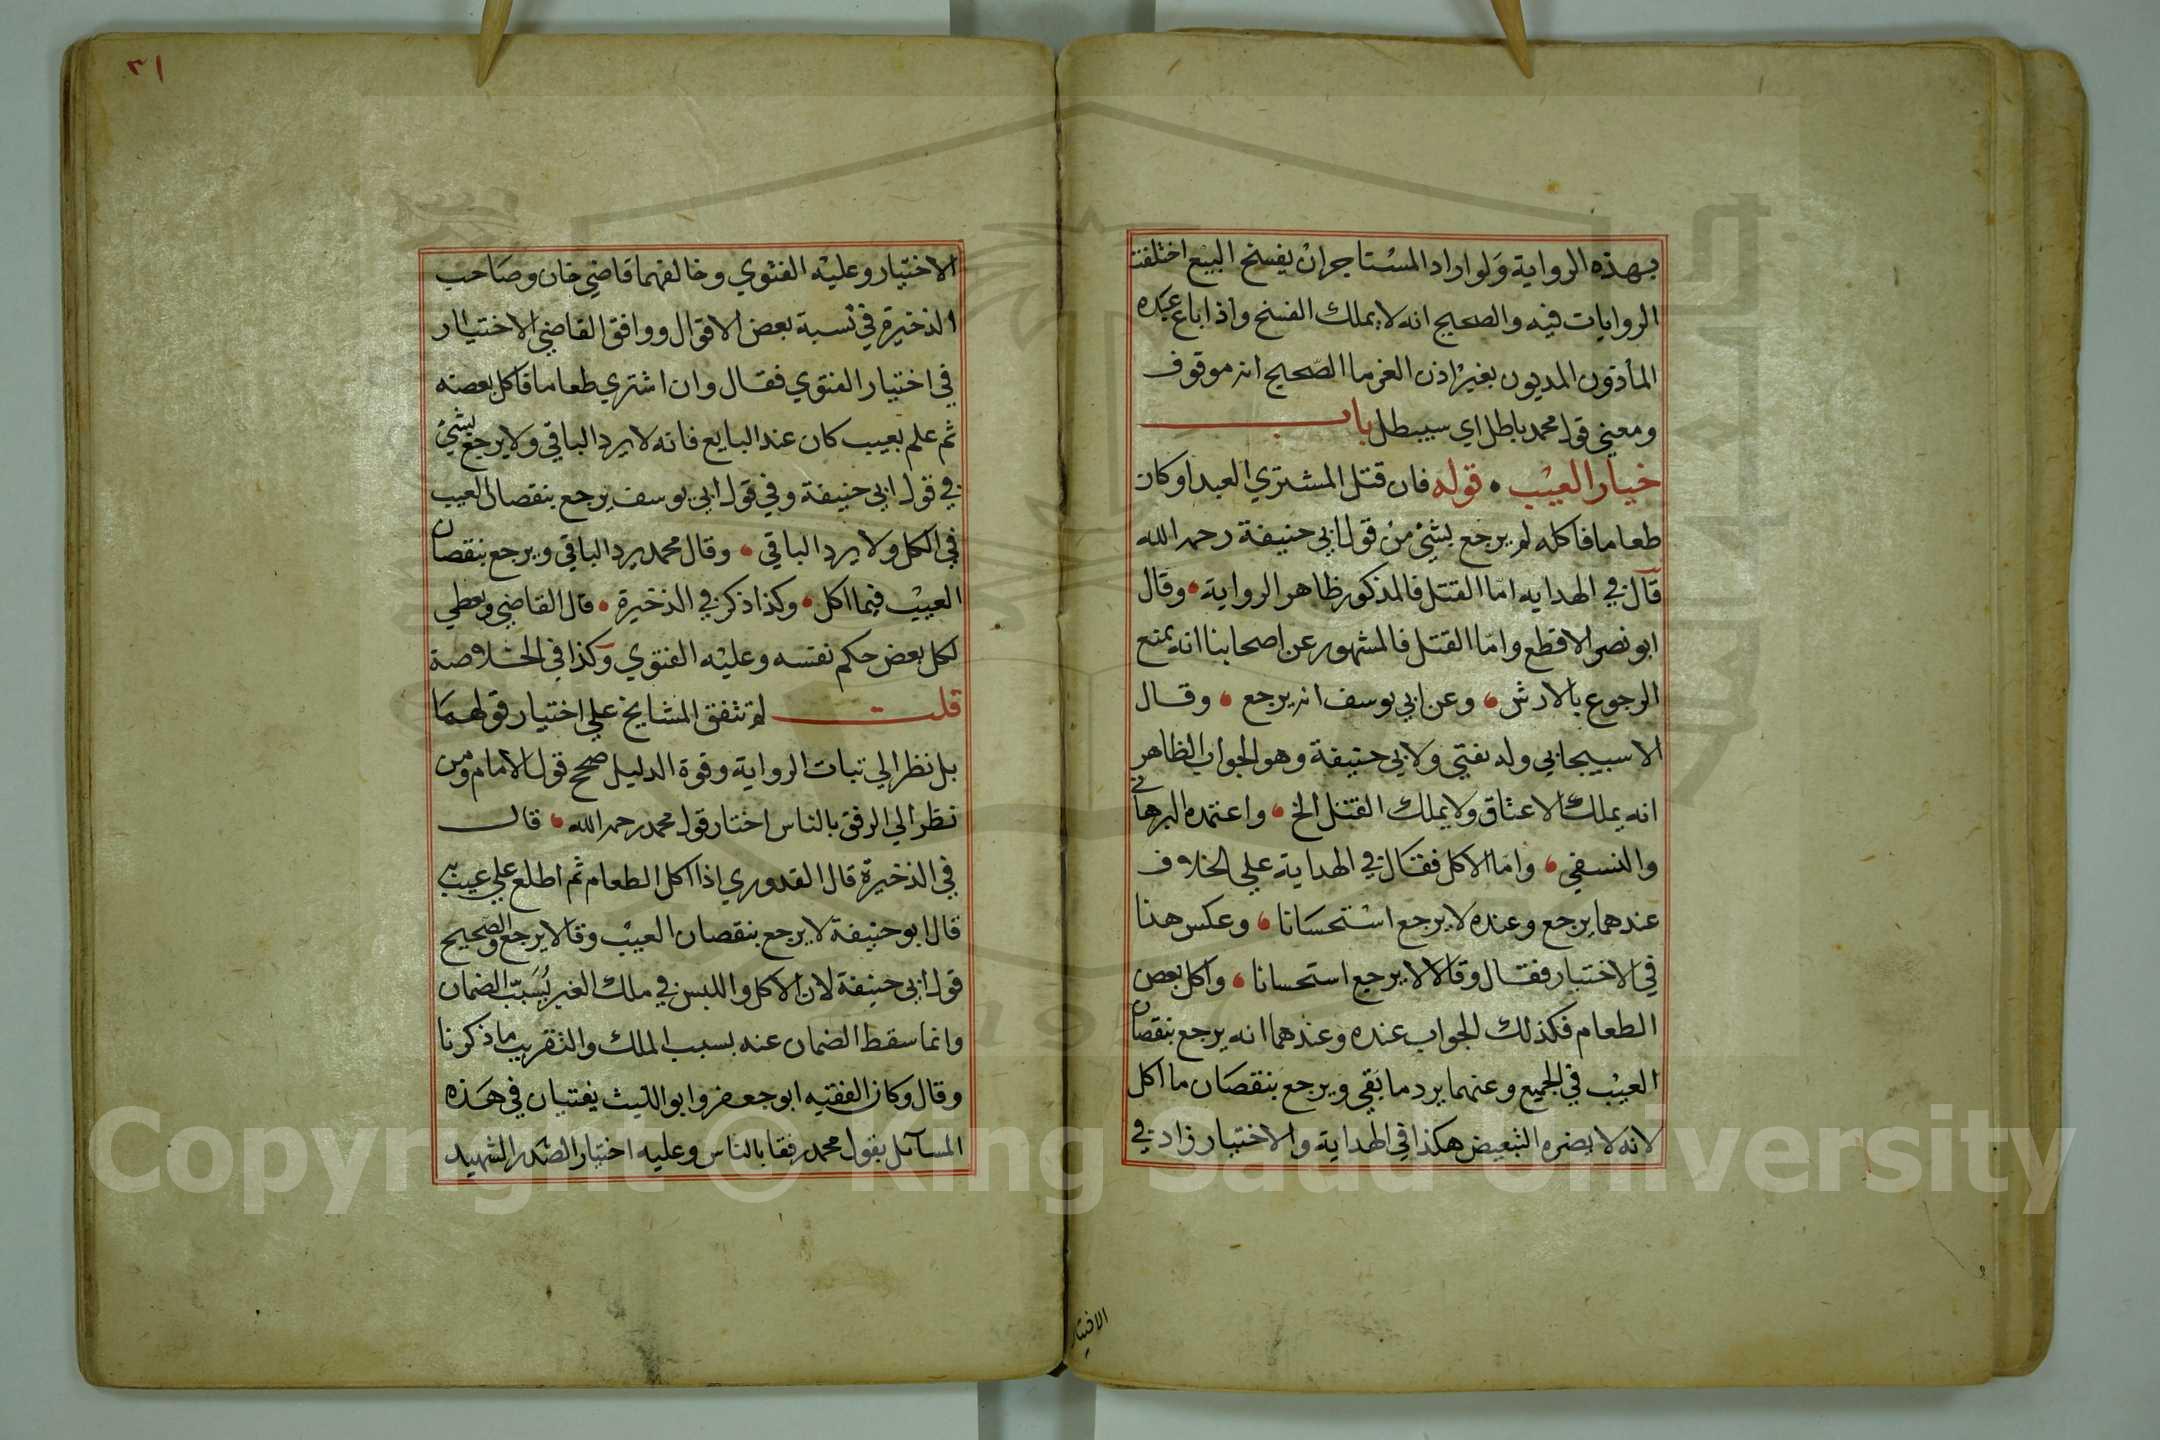 بهذه الرواية ولو اراد المستاجر ان يفسخ البيع اختلفت
الروايات فيه والصحيح انه لا يملك الفسخ واذا باع عبده
المأذون المديون بغير اذن الغرما الصحيح انه موقوف
ومعني قول محمد باطل اي سيبطل باب
خيار العيب • قوله فان قتل المشتري العبد او كان
طعاما فاكله لم يرجع بشئ من قول ابي حنيفة رحمه الله
قال في الهدايه اما القتل فالمذكور ظاهر الرواية • وقال
ابو نصر الاقطع واما القتل فالمشهور عن اصحابنا انه يمنع
الرجوع بالارش • وعن ابي يوسف انه يرجع • وقال
الاسبيجابي وله نفتي ولابي حنيفة وهو الجواب الظاهر
انه يملك الاعتاق ولا يملك القتل الخ • واعتمده البرهاني
والنسفي • واما الاكل فقال في الهداية علي الخلاف
عندهما يرجع وعنده لا يرجع استحسانا • وعكس هذا
في الاختيار فقال وقالا لا يرجع استحسانا • واكل بعض
الطعام فكذلك الجواب عنده وعندهما انه يرجع بنقصان
العيب في الجميع وعنهما يرد ما بقي ويرجع بنقصان ما اكل
لانه لا يضره التبعيض هكذا في الهداية والاختيار زاد في
الاختيار
٣١
الاختيار وعليه الفتوي وخالفهما قاضي خان وصاحب
الذخيرة في نسبة بعض الاقوال ووافق القاضي الاختيار
في اختيار الفتوي فقال وان اشتري طعاما فاكل بعضه
ثم علم بعيب كان عند البايع فانه لا يرد الباقي ولا يرجع بشئ
في قول ابي حنيفة وفي قول ابي يوسف يرجع بنقصان العيب
في الكل ولا يرد الباقي • وقال محمد يرد الباقي ويرجع بنقصان
العيب فيما اكل • وكذا ذكر في الذخيرة • قال القاضي ويعطي
لكل بعض حكم نفسه وعليه الفتوي وكذا في الخلاصة
قلت لم تتفق المشايخ علي اختيار قولهما
بل نظر الي ثبات الرواية وقوة الدليل صحح قول الامام ومن
نظر الي الرفق بالناس اختار قول محمد رحمه الله • قال
في الذخيرة قال القدوري اذا اكل الطعام ثم اطلع علي عيب به
قال ابو حنيفة لا يرجع بنقصان العيب وقالا يرجع والصحيح
قول ابي حنيفة لان الاكل واللبس في ملك الغير يسبب الضمان
وانما سقط الضمان عنه بسبب الملك والتقريب ما ذكرنا
وقال وكان الفقيه ابو جعفر وابو الليث يفتيان في هذه
المسآئل بقول محمد رفقا بالناس وعليه اختيار الصدر الشهيد
Copyright © King Saud University